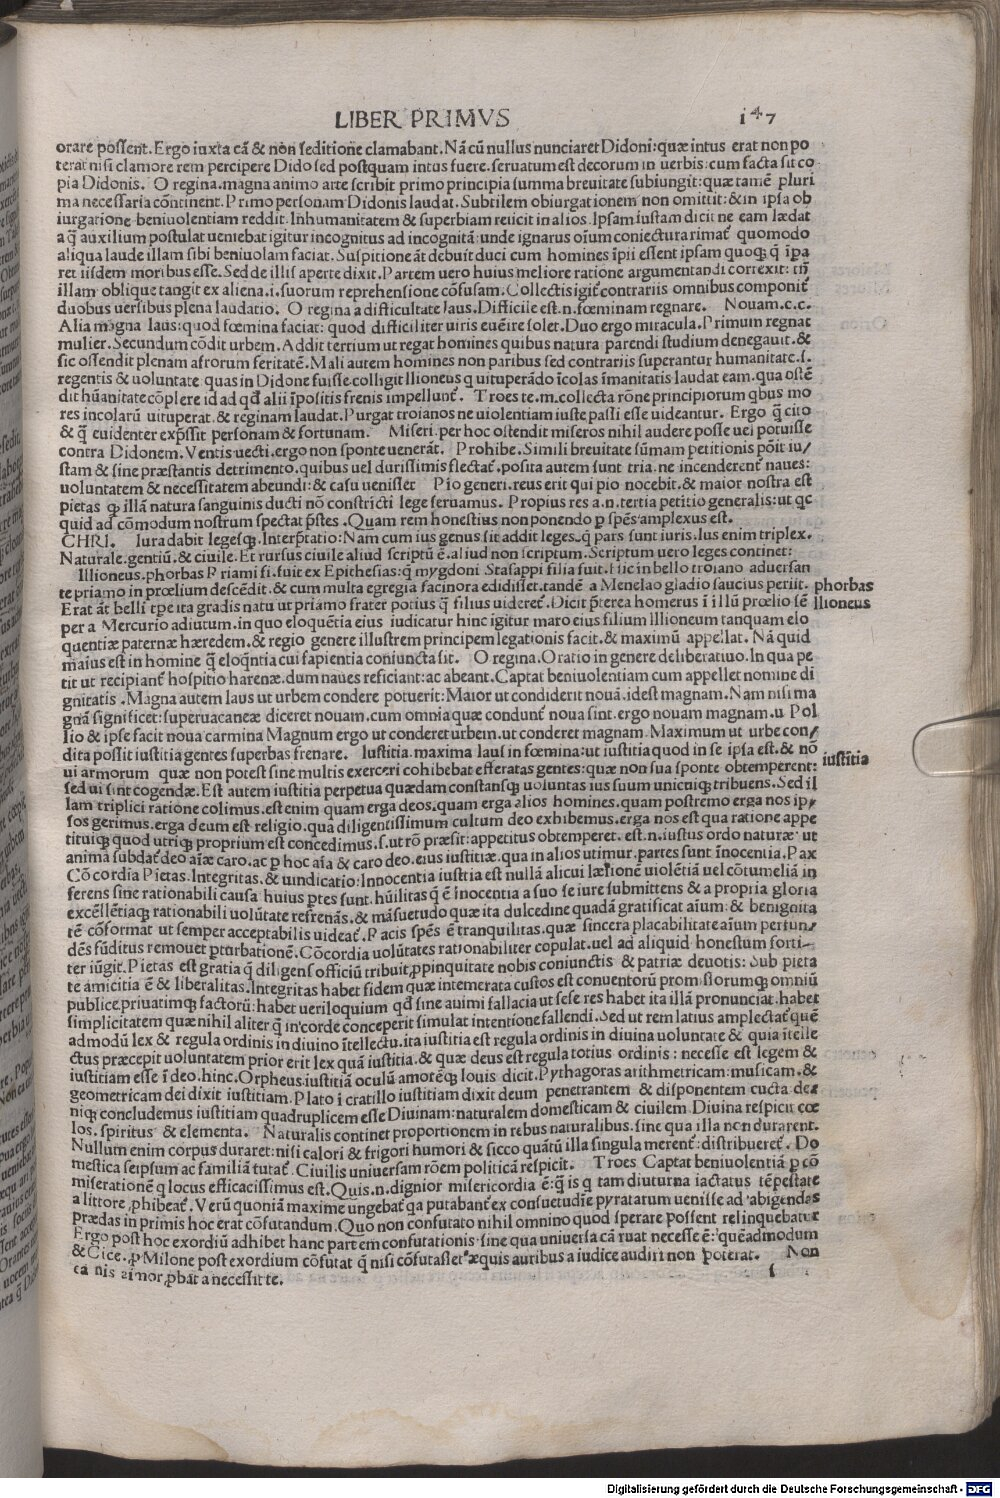 LIBER PRIMVS i47
orare possent. Ergo iuxta cā & non seditione clamabant. Nā cū nullus nunciaret Didoni: quæ intus erat non po
terat nisi clamore rem percipere Dido sed postquam intus fuere. seruatum est decorum in uerbis: cum facta sit co
pia Didonis. O regina. magna animo arte scribit primo principia summa breuitate subiungit: quæ tamē pluri
ma necessaria cōntinent. Primo personam Didonis laudat. Subtilem obiurgationem non omittit: & in ipsa ob
iurgatione beniuolentiam reddit. Inhumanitatem & superbiam reuicit in alios. Ipsam iustam dicit ne eam lædat
a q̄ auxilium postulat ueniebat igitur incognitus ad incognitā: unde ignarus oīum coniectura rimat̄ quomodo
aliqua laude illam sibi beniuolam faciat. Suspitione āt debuit duci cum homines īpii essent ipsam quoq; q̄ īpa
ret iisdem moribus esse. Sed de illis aperte dixit. Partem uero huius meliore ratione argumentandi correxit: tñ
illam oblique tangit ex aliena. i. suorum reprehensione cōfusam. Collectis igit̄ contrariis omnibus componit̄
duobus uersibus plena laudatio. O regina a difficultate laus. Difficile est. n. fœminam regnare. Nouam. c. c.
Alia magna laus: quod fœmina faciat: quod difficiliter uiris euēire solet. Duo ergo miracula. Primum regnat
mulier. Secundum cōdit urbem. Addit tertium ut regat homines quibus natura parendi studium denegauit. &
sic ostendit plenam afrorum feritatē. Mali autem homines non paribus sed contrariis superantur humanitate. s.
regentis & uoluntate quas in Didone fuisse colligit Ilioneus q uituperādo īcolas īmanitatis laudat eam. qua ostē
dit hūanitate cōplere id ad qđ alii īpositis frenis impellunt̄. Troes te. m. collecta rōne principiorum qbus mo
res incolarū uituperat. & reginam laudat. Purgat troianos ne uiolentiam iuste passi esse uideantur. Ergo q̄ cito
& q̄ euidenter exp̄ssit personam & fortunam. Miseri. per hoc ostendit miseros nihil audere posse uel potuisse
contra Didonem. Ventis uecti. ergo non sponte uenerāt. Prohibe. Simili breuitate sūmam petitionis pōit iu/
stam & sine præstantis detrimento. quibus uel durissimis flectat̄. posita autem sunt tria. ne incenderent̄ naues:
uoluntatem & necessitatem abeundi: & casu uenisset Pio generi. reus erit qui pio nocebit. & maior nostra est
pietas q̄ illā natura sanguinis ducti nō constricti lege seruamus. Propius res a. n. tertia petitio generalis: ut qc
quid ad cōmodum nostrum spectat p̄stes. Quam rem honestius non ponendo p spēs amplexus est.
CHRI. Iura dabit legesq;. Interp̄tatio: Nam cum ius genus sit addit leges. q̄ pars sunt iuris. Ius enim triplex.
Naturale. gentiū. & ciuile. Et rursus ciuile aliud scriptū ē. aliud non scriptum. Scriptum uero leges continet:
Illioneus. phorbas Priami fi. fuit ex Epithesias: q̄ mygdoni Stasappi filia fuit. Hic in bello troiano aduersan
te priamo in prœlium descēdit. & cum multa egregia facinora edidisset. tandē a Menelao gladio saucius periit. phorbas
Erat āt belli tpe ita gradis natu ut priamo frater potius q̄ filius uideret̄. Dicit p̄terea homerus ī illū prœlio sē Illioneus
per a Mercurio adiutum. in quo eloquētia eius iudicatur hinc igitur maro eius filium Illioneum tanquam elo
quentiæ paternæ hæredem. & regio genere illustrem principem legationis facit. & maximū appellat. Nā quid
maius est in homine q̄ eloqntia cui sapientia coniuncta sit. O regina. Oratio in genere deliberatiuo. In qua pe
tit ut recipiant̄ hospitio harenæ. dum naues reficiant: ac abeant. Captat beniuolentiam cum appellet nomine di
gnitatis. Magna autem laus ut urbem condere potuerit: Maior ut condiderit nouā. idest magnam. Nam nisi ma
gnā significet: superuacaneæ diceret nouam. cum omnia quæ condunt̄ noua sint. ergo nouam magnam. u Pol
lio & ipse facit noua carmina Magnum ergo ut conderet urbem. ut conderet magnam. Maximum ut urbe con/
dita possit iustitia gentes superbas frenare. Iustitia. maxima laus in fœmina: ut iustitia quod in se ipsa est. & nō
ui armorum quæ non potest sine multis exerceri cohibebat efferatas gentes: quæ non sua sponte obtemperent: iustitia
sed ui sint cogendæ. Est autem iustitia perpetua quædam constansq; uoluntas ius suum unicuiq; tribuens. Sed il
lam triplici ratione colimus. est enim quam erga deos. quam erga alios homines. quam postremo erga nos ip/
sos gerimus. erga deum est religio. qua diligentissimum cultum deo exhibemus. erga nos est qua ratione appe
tituiq; quod utriq; proprium est concedimus. s. ut rō præsit: appetitus obtemperet. est. n. iustus ordo naturæ ut
anima subdat̄ deo aīæ caro. ac p hoc aīa & caro deo. eius iustitiæ. qua in alios utimur. partes sunt īnocentia. Pax
Cōcordia Pietas. Integritas. & uindicatio: Innocentia iustitia est nullā alicui læsionē uiolētiā uel cōtumeliā in
ferens sine rationabili causa huius p̄tes sunt. hūilitas q̄ ē īnocentia a suo se iure submittens & a propria gloria
excellētiaq; rationabili uolūtate refrenās. & māsuetudo quæ ita dulcedine quadā gratificat aīum: & benignita
tē cōformāt ut semper acceptabilis uideat̄. Pacis spēs ē tranquilitas. quæ sincera placabilitate aīum perfun/
dēs fūditus remouet pturbationē. Cōcordia uolūtates rationabiliter copulat. uel ad aliquid honestum sorti-
ter iūgit. Pietas est gratia q̄ diligens officiū tribuit, ppinquitate nobis coniunctis & patriæ deuotis: Sub pieta
te amicitia ē & liberalitas. Integritas habet fidem quæ intemerata custos est conuentorū promissorumq; omniū
publice priuatimq; factorū: habet ueriloquium qđ sine auimi fallacia ut sese res habet ita illā pronunciat. habet
simplicitatem quæ nihil aliter q̄ in corde conceperit simulat intentione fallendi. Sed ut rem latius amplectat̄ quē
admodū lex & regula ordinis in diuino ītellectu. ita iustitia est regula ordinis in diuina uoluntate & quia ītelle
ctus præcepit uoluntatem prior erit lex quā iustitia. & quæ deus est regula totius ordinis: necesse est legem &
iustitiam esse ī deo. hinc. Orpheus. iustitiā oculū amorēq; Iouis dicit. Pythagoras arithmetricam: musicam. &
geometricam dei dixit iustitiam. Plato ī cratillo iustitiam dixit deum penetrantem & disponentem cūcta de/
niq; concludemus iustitiam quadruplicem esse Diuinam: naturalem domesticam & ciuilem Diuina respicit cœ
los. spiritus & elementa. Naturalis continet proportionem in rebus naturalibus. sine qua illa non durarent.
Nullum enim corpus duraret: nisi calori & frigori humori & sicco quātū illa singula merent̄: distribueret̄. Do
mestica seipsum ac familiā tutat̄. Ciuilis uniuersam rōem politicā respicit. Troes Captat beniuolentiā p cō
miserationē q locus efficacissimus est. Quis. n. dignior misericordia ē: q̄ is q tam diuturna iactatus tēpestate
a littore, phibeat̄. Verū quoniā maxime ungebat̄ qa putabant̄ ex consuetudīe pyratarum uenisse ad abigendas
prædas in primis hoc erat cōfutandum. Quo non confutato nihil omnino quod sperare possent relinquebatur
Ergo post hoc exordiū adhibet hanc partem confutationis sine qua uniuersa cā ruat necesse ē: quēadmodum
& Cice. p Milone post exordium cōfutat q̄ nisi cōfutasset æquis auribus a iudice audiri non poterat. Non
ca nis aīmor, pbāt a necessitte. i
Digitalisierung gefördert durch die Deutsche Forschungsgemeinschaft - DFG